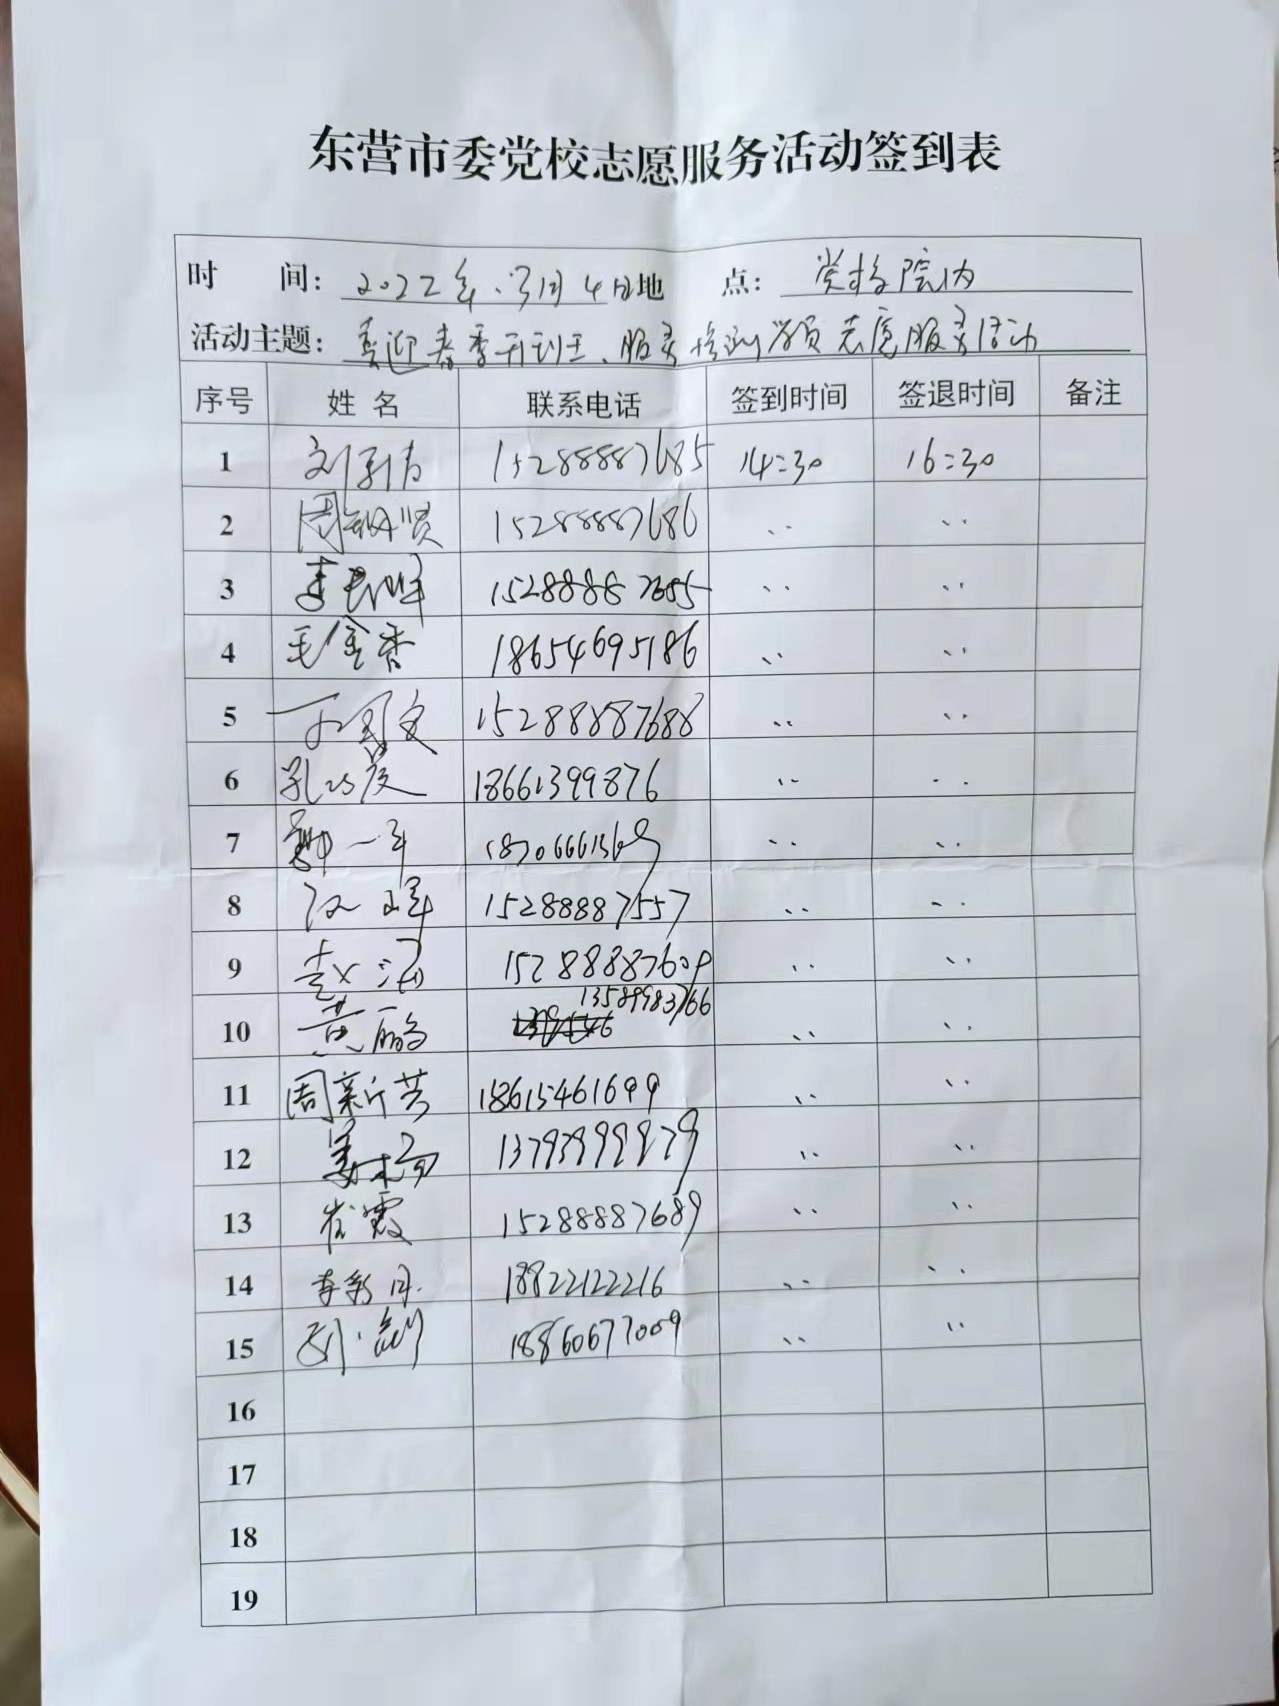 东营市委党校志愿服务活动签到表
时 间: 2022年3月4日 地 点: 党校院内
活动主题: 喜迎春季开班、服务培训学员志愿服务活动
序号 姓名 联系电话 签到时间 签退时间 备注
1 刘 15288887685 14:30 16:30
2 周 贤 15288887686 〃 〃
3 李 15288887655 〃 〃
4 毛金香 18654695186 〃 〃
5 丁国文 15288887688 〃 〃
6 孔 18661399876 〃 〃
7 一平 18706661369 〃 〃
8 汉峰 15288887557 〃 〃
9 赵 1528888760 〃 〃
10 黄鹂 13589983766 〃 〃
11 周新芳 18615461699 〃 〃
12 姜杨 〃 〃
13 崔霞 15288887689 〃 〃
14 李彩丹 18822122216 〃 〃
15 刘剑 18860677009 〃 〃
16
17
18
19